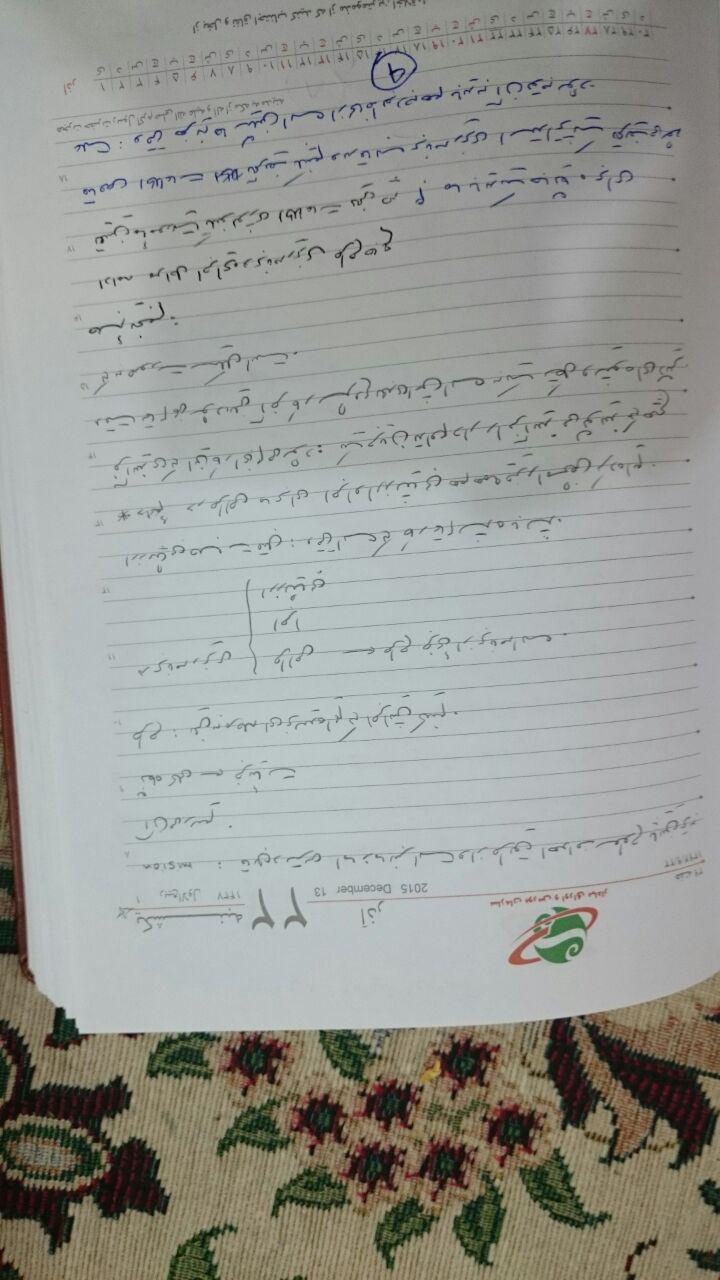 یکشنبه ۲۲ آذر
۱ ربیع‌الاول ۱۴۳۷ 2015 December 13
سازمان بورس و اوراق بهادار
هفته ۳۹
۱۳۹۴/۹/۲۲
mision : قابل دسترس اما زمانبر است و از طریق اهداف سطوح پایین‌تر به
آن می رسیم.
نگاه کلی به جزئیات
طرح : یعنی به مرحله ای نرسیده ایم که اجرایش کنیم.
در برنامه ریزی
طراحی ← طرح جزئی از برنامه است.
اجرا
ارزشیابی
ارزشیابی جلسات قبل : وقتی است که کار تمام شده باشد.
* در طراحی ما برای اجرا و ارزشیابی هم همه چیز را مشخص کرده ایم.
فرآیندی که این کار انجام می شود: یک جریان تداوم دار را فرآیند می گویند که هیچ
وقت تمام نمی شود یعنی آخر کار شروع بعدی اش است به یک شکل و شیوه ای دیگر
که به صورت سیکل است.
جلسه پنجم:
ادامه مراحل اجرایی و برنامه ریزی طرح جامع
تعیین مأموریت تکنولوژی اطلاعات یعنی چه ؟ ما باید یک جایگاه برای
اطلاعات تعریف بکنیم و در قالب برنامه ریزی استراتژیک تعریف می شود
علت : وقتی هزینه ها سنگین است از لحاظ بودجه هم باید به آن توجه شود.
هجرت حضرت رسول اکرم صلی الله علیه و آله از مکه به مدینه
۹
آذر ۱ ۲ ۳ ۴ ۵ ۶ ۷ ۸ ۹ ۱۰ ۱۱ ۱۲ ۱۳ ۱۴ ۱۵ ۱۷ ۱۸ ۱۹ ۲۰ ۲۱ ۲۲ ۲۳ ۲۴ ۲۵ ۲۶ ۲۷ ۲۸ ۲۹ ۳۰
از بخل و نفاق اجتناب کنید که از مذمومترین